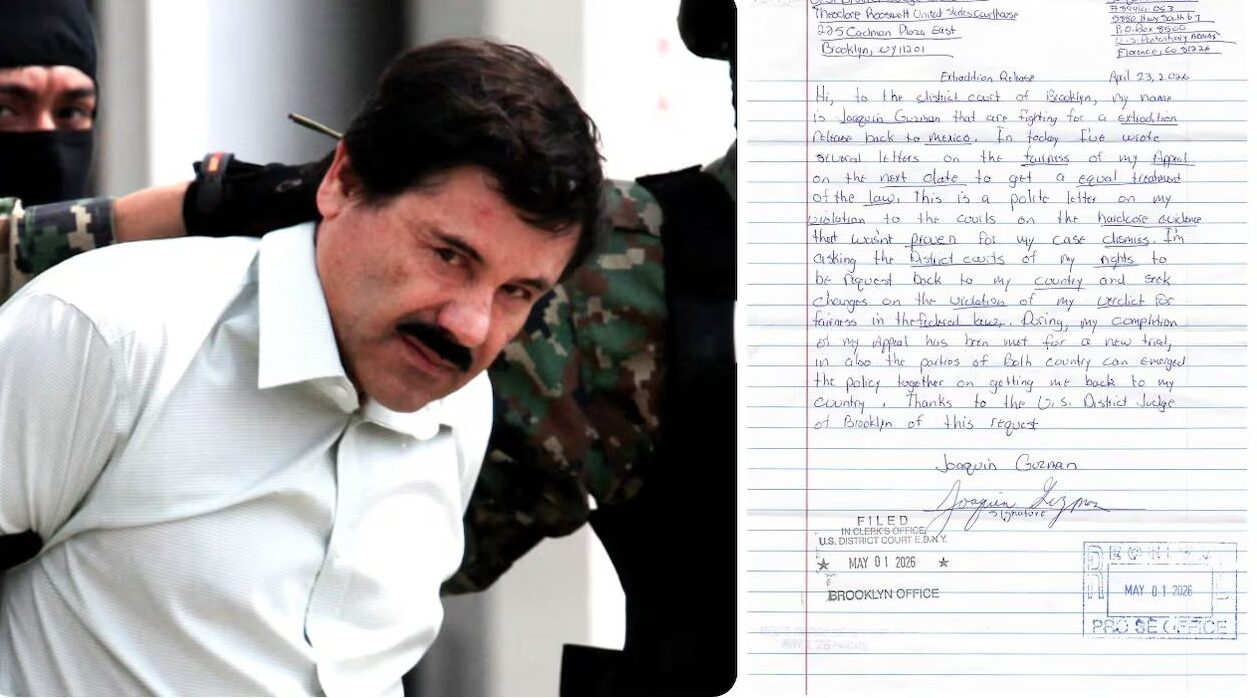 Theodore Roosevelt United States Courthouse
225 Cadman Plaza East
Brooklyn, NY 11201
#89914-053
5880 Hwy 67
P.O. Box 8500
Florence, Co 81226
Extradition Release April 23, 2026
Hi, to the district court of Brooklyn, my name
is Joaquin Guzman that are fighting for a extradition
release back to mexico. In today I've wrote
several letters on the fairness of my Appeal
on the next date to get a equal treatment
of the law. This is a polite letter on my
violation to the courts on the hardcose evidence
that wasn't proven for my case dismiss. I'm
asking the District courts of my rights to
be request back to my country and seek
changes on the violation of my verdict for
fairness in the federal law. During, my completion
of my Appeal has been met for a new trial,
in also the parties of Both country can emerged
the policy together on getting me back to my
country. Thanks to the U.S. District Judge
of Brooklyn of this request
Joaquin Guzman
Joaquin Guzman
signature
FILED
IN CLERK'S OFFICE
U.S. DISTRICT COURT E.D.N.Y.
★ MAY 01 2026 ★
BROOKLYN OFFICE
MAY 01 2026
PRO SE OFFICE